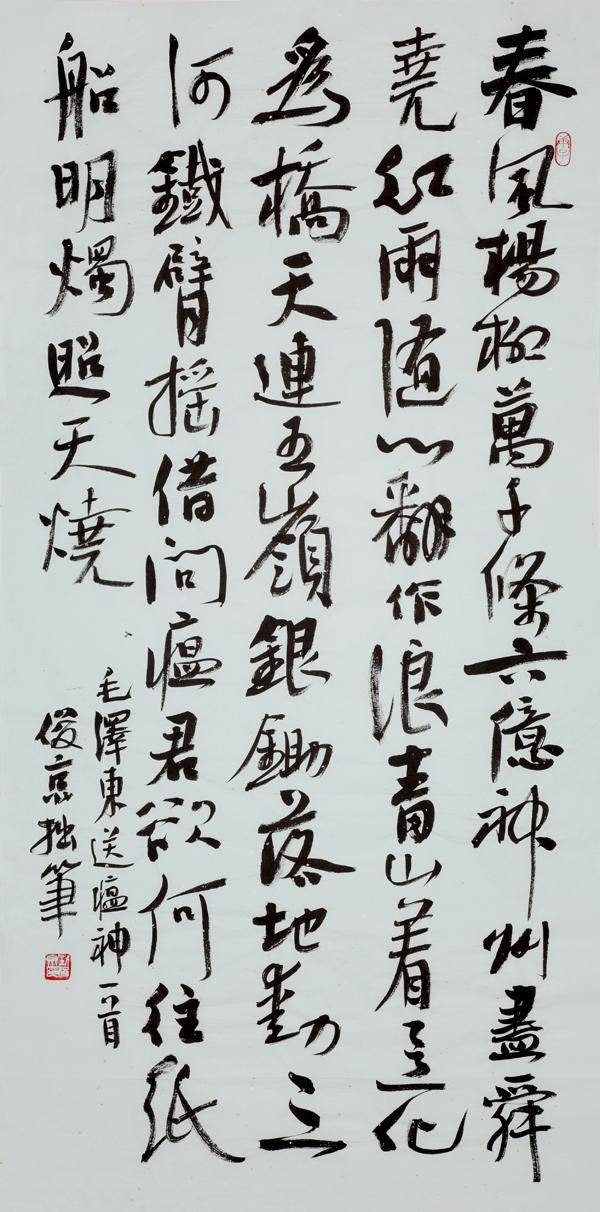 春風楊柳萬千條六億神州盡舜
堯紅雨隨心翻作浪青山着意化
為橋天連五嶺銀鋤落地動三
河鐵臂搖借問瘟君欲何往紙
船明燭照天燒
毛澤東送瘟神一首
俊京拙筆